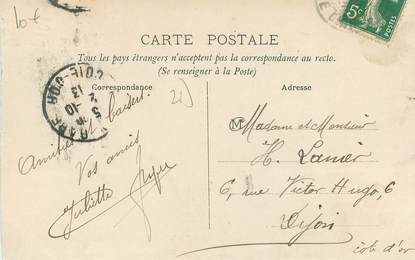 10€
5c
CARTE POSTALE
Tous les pays étrangers n'acceptent pas la correspondance au recto.
(Se renseigner à la Poste)
Correspondance
Adresse
COTE-D'OR
13
10
Amitiés et baisers.
Vos amis
Juliette
M
Madame et Monsieur
H. Lanier
6, rue Victor Hugo, 6
Dijon
côte d'or